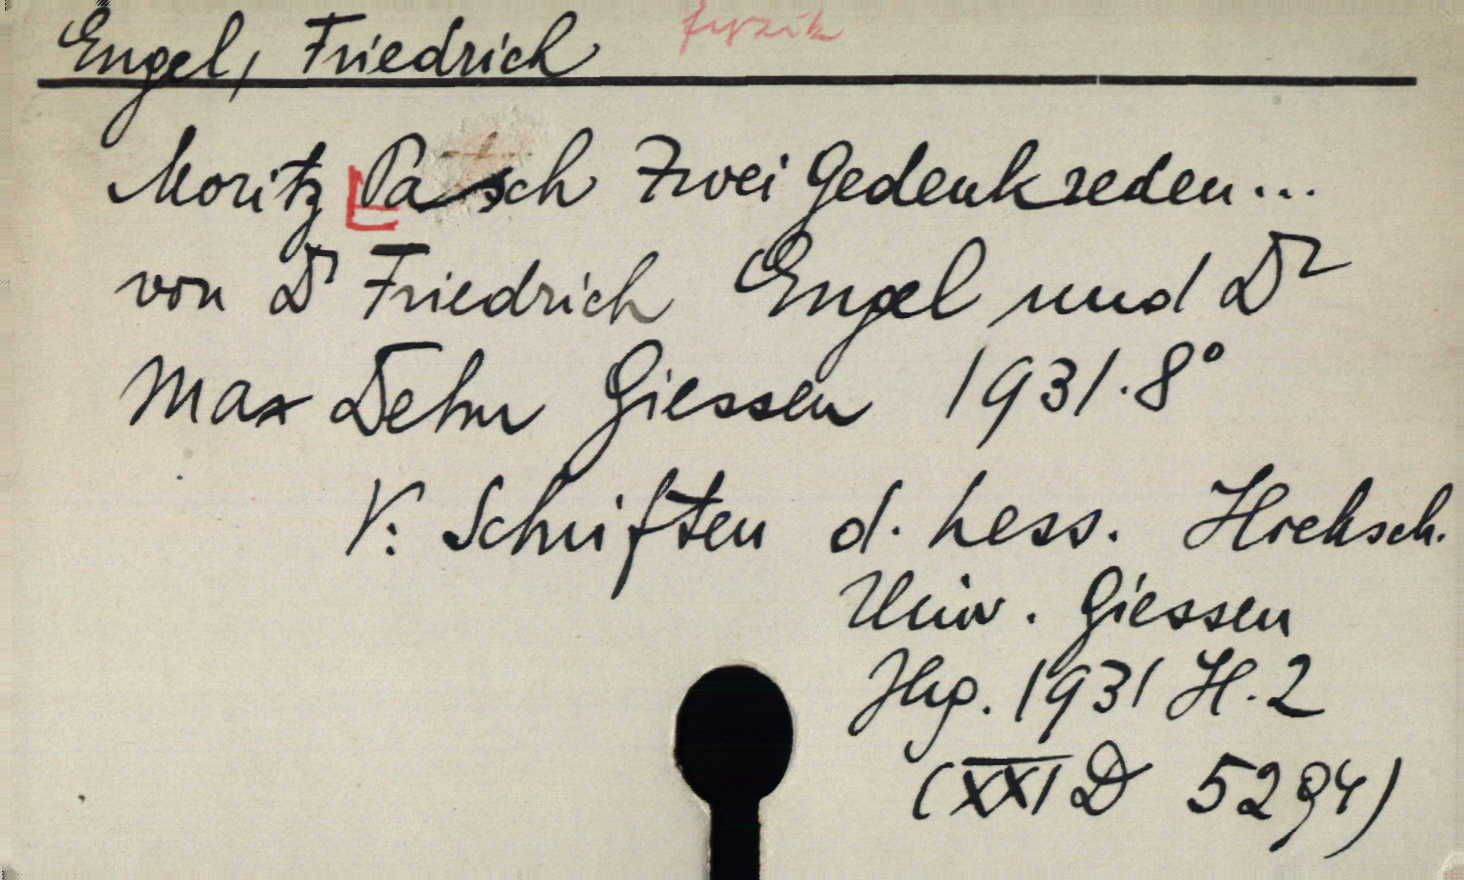 Engel, Friedrich fyzik
Moritz Pasch Zwei Gedenkreden...
von Dr Friedrich Engel und Dr
Max Dehn Giessen 1931.8°
V: Schriften d. hess. Hochsch.
Univ. Giessen
Jhg. 1931 H.2
(XXI D 5294)